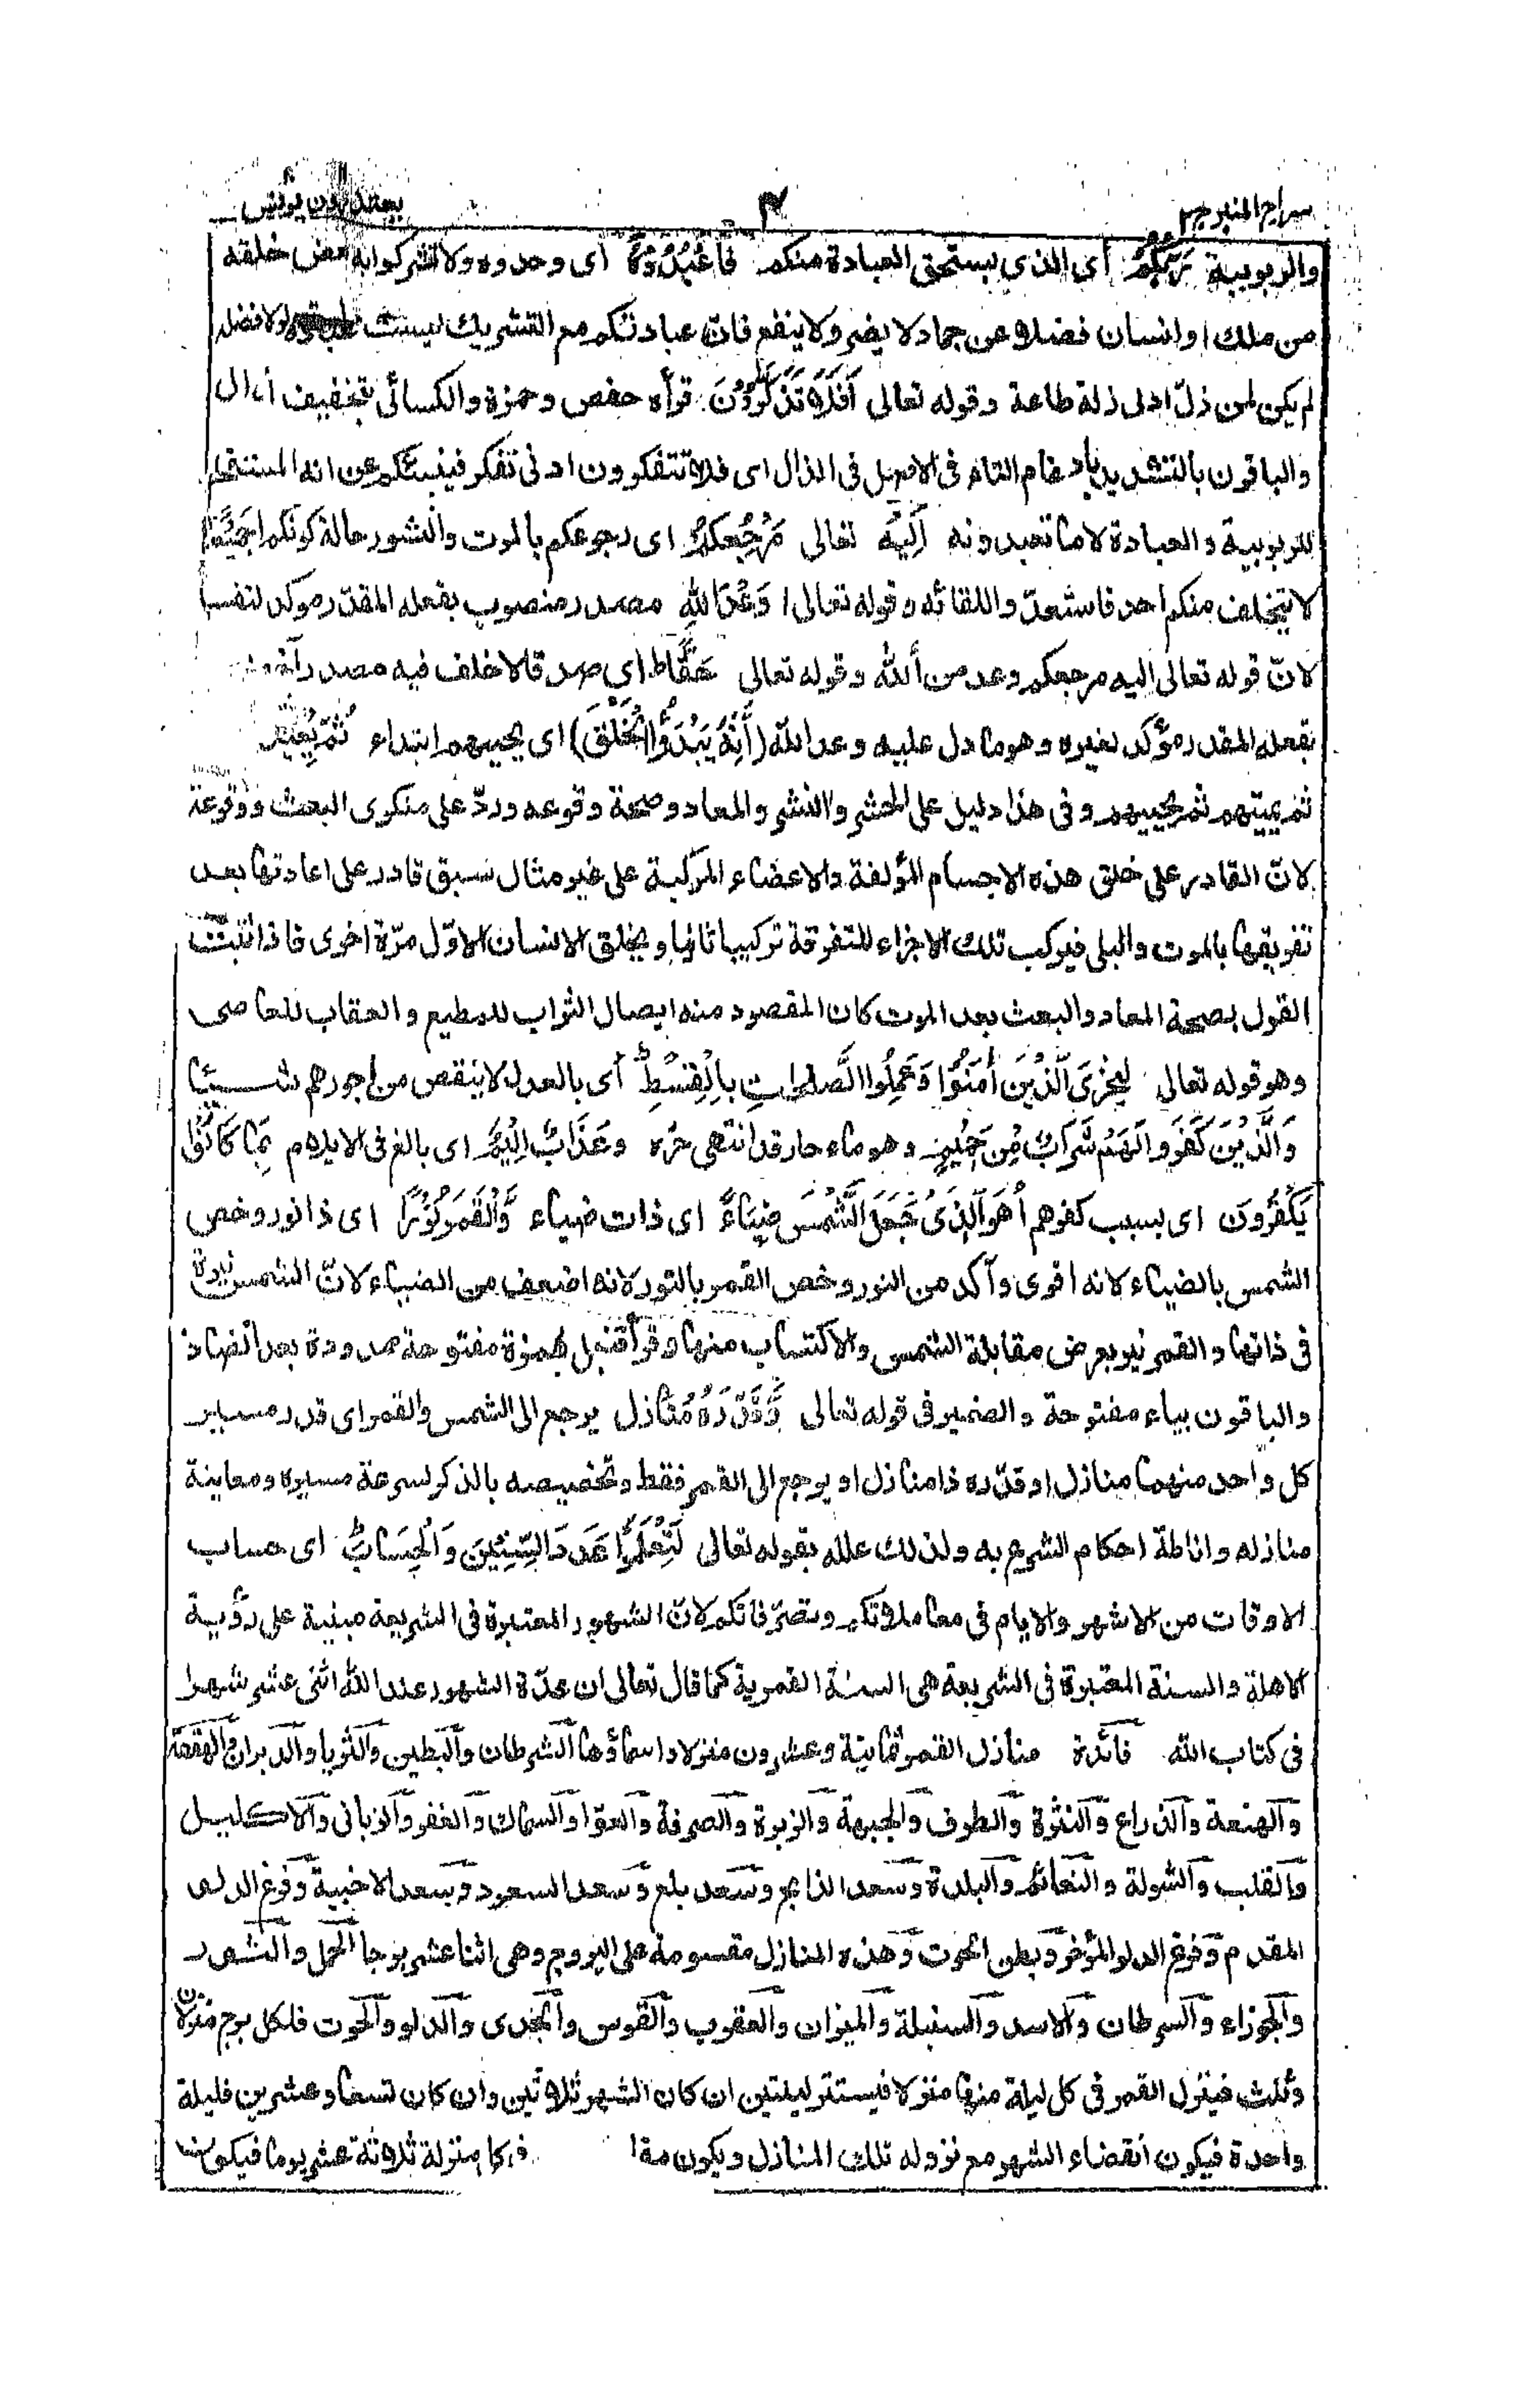 سراج المنير ج٢
٤
يعتذرون يونس
والربوبية رَبُّكُمْ اى الذي يستحق العبادة منكم فَاعْبُدُوْهُ اى وحدوه ولا تشركوا به بعض خلقه
من ملك او انسان فضلا عن جماد لا يضر ولا ينفع فانّ عبادتكم مع التشريك ليست ولولا فضله
لم يكن لمن ذلّ ادلى ذلة طاعة وقوله تعالى أَفَلَا تَذَكَّرُوْنَ قرأه حفص وحمزة والكسائى بتخفيف الذال
والباقون بالتشديد بادغام التاء فى الاصل فى الذال اى فلا تتفكرون ادنى تفكر فينبئكم عن انه المستحق
للربوبية والعبادة لا ما تعبدونه اِلَيْهِ تعالى مَرْجِعُكُمْ اى رجوعكم بالموت والنشور حالة كونكم جَمِيْعًا
لا يتخلف منكم احد فاستعدّوا للقائه وقوله تعالى وَعْدَ اللّٰهِ مصدر منصوب بفعله المقدر موكد لنفسه
لانّ قوله تعالى اليه مرجعكم وعد من الله وقوله تعالى حَقًّا ط اى صدقا لا خلف فيه مصدر آخر منصوب
بفعله المقدر مؤكد لغيره وهو ما دل عليه وعد الله (اِنَّهٗ يَبْدَؤُا الْخَلْقَ) اى يحييهم ابتداء ثُمَّ يُعِيْدُهٗ
ثم يميتهم ثم يحييهم وفى هذا دليل على الحشر والنشر والمعاد وصحة وقوعه وردّ على منكرى البعث ووقوعه
لانّ القادر على خلق هذه الاجسام المؤلفة والاعضاء المركبة على غير مثال سبق قادر على اعادتها بعد
تفريقها بالموت والبلى فيركب تلك الاجزاء المتفرقة تركيبا ثانيا ويخلق الانسان الاوّل مرّة اخرى فاذا ثبت
القول بصحة المعاد والبعث بعد الموت كان المقصود منه ايصال الثواب للمطيع والعقاب للعاصى
وهو قوله تعالى لِيَجْزِىَ الَّذِيْنَ اٰمَنُوْا وَعَمِلُوا الصّٰلِحٰتِ بِالْقِسْطِ اى بالعدل لا ينقص من اجورهم شيئا
وَالَّذِيْنَ كَفَرُوا لَهُمْ شَرَابٌ مِّنْ حَمِيْمٍ وهو ماء حار قد انتهى حرّه وَعَذَابٌ اَلِيْمٌ اى بالغ فى الايلام بِمَا كَانُوْا
يَكْفُرُوْنَ اى بسبب كفرهم هُوَ الَّذِىْ جَعَلَ الشَّمْسَ ضِيَاءً اى ذات ضياء وَّالْقَمَرَ نُوْرًا اى ذا نور وخص
الشمس بالضياء لانه اقوى وآكد من النور وخص القمر بالنور لانه اضعف من الضياء لانّ الشمس نيرة
فى ذاتها والقمر نير بعرض مقابلة الشمس والاكتساب منها وقرأ قنبل بهمزة مفتوحة ممدودة بعد الضاد
والباقون بياء مفتوحة والضمير فى قوله تعالى وَّقَدَّرَهٗ مَنَازِلَ يرجع الى الشمس والقمر اى قدر مسير
كل واحد منهما منازل او قدّره ذا منازل او يرجع الى القمر فقط وتخصيصه بالذكر لسرعة مسيره ومعاينة
منازله واناطة احكام الشرع به ولذلك علله بقوله تعالى لِتَعْلَمُوْا عَدَدَ السِّنِيْنَ وَالْحِسَابَ اى حساب
الاوقات من الاشهر والايام فى معاملاتكم وتصرّفاتكم لانّ الشهور المعتبرة فى الشريعة مبنية على رؤية
الاهلة والسنة المعتبرة فى الشريعة هى السنة القمرية كما قال تعالى ان عدّة الشهور عند الله اثنى عشر شهرا
فى كتاب الله فائدة منازل القمر ثمانية وعشرون منزلا واسماؤها الشرطان والبطين والثريا والدبران والهقعة
والهنعة والذراع والنثرة والطرف والجبهة والزبرة والصرفة والعوّا والسماك والغفر والزبانى والاكليل
والقلب والشولة والنعائم والبلدة وسعد الذابح وسعد بلع وسعد السعود وسعد الاخبية وفرغ الدلو
المقدم وفرغ الدلو المؤخر وبطن الحوت وهذه المنازل مقسومة على البروج وهى اثنا عشر برجا الحمل والثور
والجوزاء والسرطان والاسد والسنبلة والميزان والعقرب والقوس والجدى والدلو والحوت فلكل برج منزلان
وثلث فينزل القمر فى كل ليلة منها منزلا فيستتر ليلتين ان كان الشهر ثلاثين وان كان تسعا وعشرين فليلة
واحدة فيكون انقضاء الشهر مع نزوله تلك المنازل ويكون فى كل منزلة ثلاثة عشر يوما فيكون